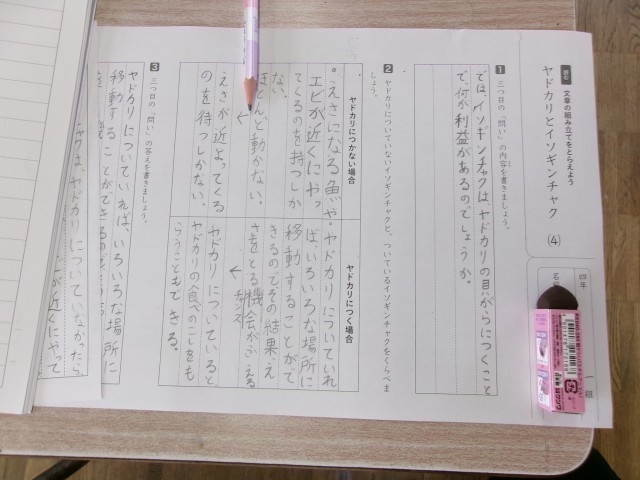 読む 文章の組み立てをとらえよう
ヤドカリとイソギンチャク (4)
四年
1 三つ目の「問い」の内容を書きましょう。
では、イソギンチャクは、ヤドカリの貝がらにつくこと
で、何か利益があるのでしょうか。
2 ヤドカリについていないイソギンチャクと、ついているイソギンチャクをくらべま
しょう。
ヤドカリにつかない場合
・えさになる魚や
エビが近くにやっ
てくるのを待つしか
ない。
ほとんど動かない、
えさが近よってくる
のを待つしかない。
ヤドカリにつく場合
・ヤドカリについていれ
ば、いろいろな場所に
移動することがで
きるのでその結果、え
さをとる機会がふえる
チャンス
ヤドカリについていると
ヤドカリの食べのこしをも
らうこともできる。
3 三つ目の「問い」の答えを書きましょう。
ヤドカリについていれば、いろいろな場所に
移動することができるので
ヤドカリについていなかったら、
が近くにやって